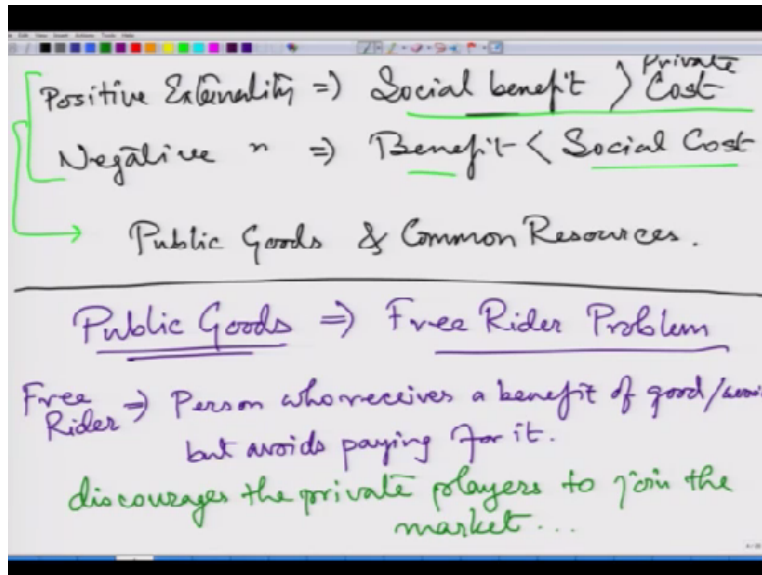 Positive Externality => Social benefit > Private Cost
Negative " => Benefit < Social Cost
Public Goods & Common Resources.
Public Goods => Free Rider Problem
Free Rider => Person who receives a benefit of good/
but avoids paying for it.
discourages the private players to join the
market...